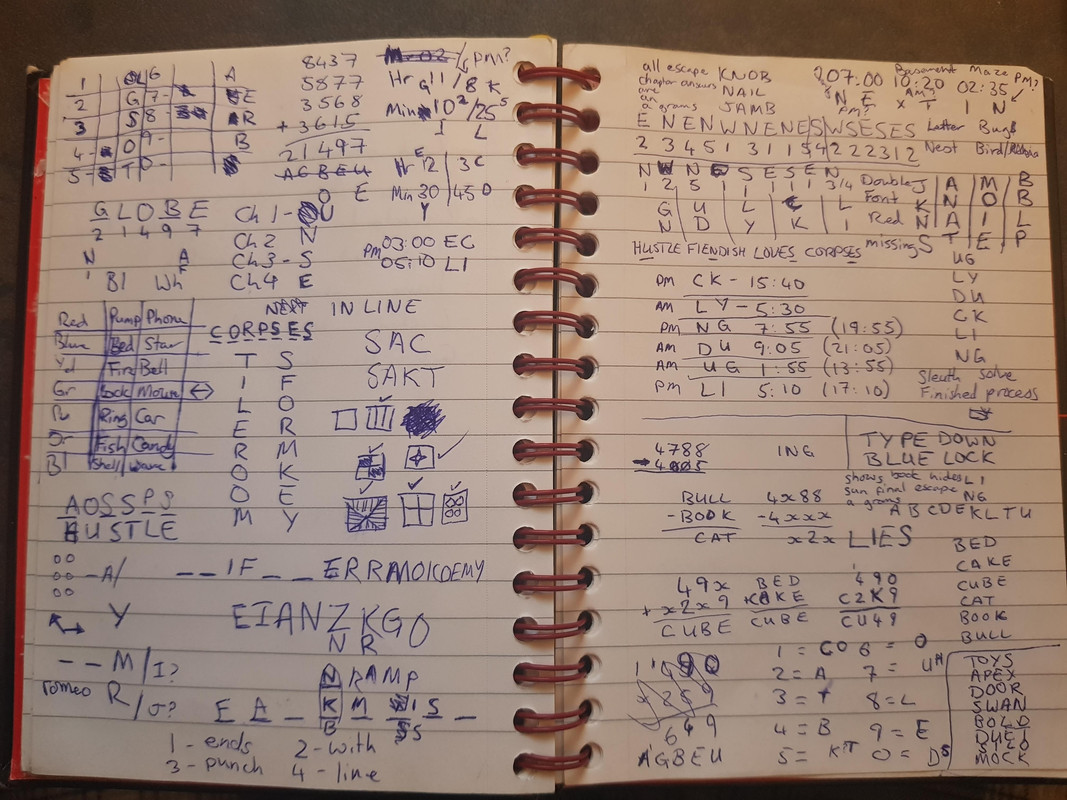 8437
5877
3568
+ 3615
21497
AGBEU
1 6 A
2 G 7- E
3 S 8- R
4- O 9- B
5- T 0-
pm?
Hr 11 / 8 K
G
Min 10² / 25 S
I L
Hr 12 3 C
E
Min 30 45 D
O E Y
GLOBE
21497
N A
1 Bl Wh F
Ch 1 - U
Ch 2 N
Ch 3 - S
Ch 4 E
PM 03:00 EC
05:10 LI
NEXT IN LINE
Red Pump Phone
Blue Bed Star
Yd Fire Bell
Gr Book Mouse
Pu Ring Car
Or Fish Candy
Bl Shell
CORPSES
T S
I F
L O
E R
R M
O K
O E
M Y
SAC
SAKT
AOSSPS
HUSTLE
-A/ _ _ IF _ _ ERRMOKDEMY
Y EIANZKGO
N R
_ _ M/I?
N RAMP
romeo R/J?
E A _ K M IS _
B SS
1 - ends 2 - with
3 - punch 4 - line
all escape KNOB
chapter answers NAIL
are
an JAMB
a grams
?07:00 10:20 02:35
Basement Maze PM?
N E Am T I N
pm? x
ENENWNENESWSESES Letter Bugs
2 3 4 5 1 3 1 1 5 4 2 2 2 3 1 2 Neot Bird/
N W N E S E S E N
1 2 5 1 1 1 1 1 3/4
Double J A M B
G U L C L Font K N O B
N D Y K I Red N A I L
missing S T E P
HUSTLE FIENDISH LOVES CORPSES
PM CK - 15:40
AM LY - 5:30
PM NG 7:55 (19:55)
AM DU 9:05 (21:05)
AM UG 1:55 (13:55)
PM LI 5:10 (17:10)
UG
LY
DU
CK
LI
NG
Sleuth solve
Finished process
4788
4005
ING
TYPE DOWN
BLUE LOCK
shows book hides LI
sun final escape NG
a grams
ABCDEKLTU
BULL 4x88
-BOOK -4xxx
CAT x2x
LIES
49x BED 490
+x2x9 +CAKE C2K9
CUBE CUBE CU49
BED
CAKE
CUBE
CAT
BOOK
BULL
649
AGBEU
1 = C 6 = O
2 = A 7 = U
3 = T 8 = L
4 = B 9 = E
5 = K 0 = D
TOYS
APEX
DOOR
SWAN
BOLD
DUET
SILO
MOCK